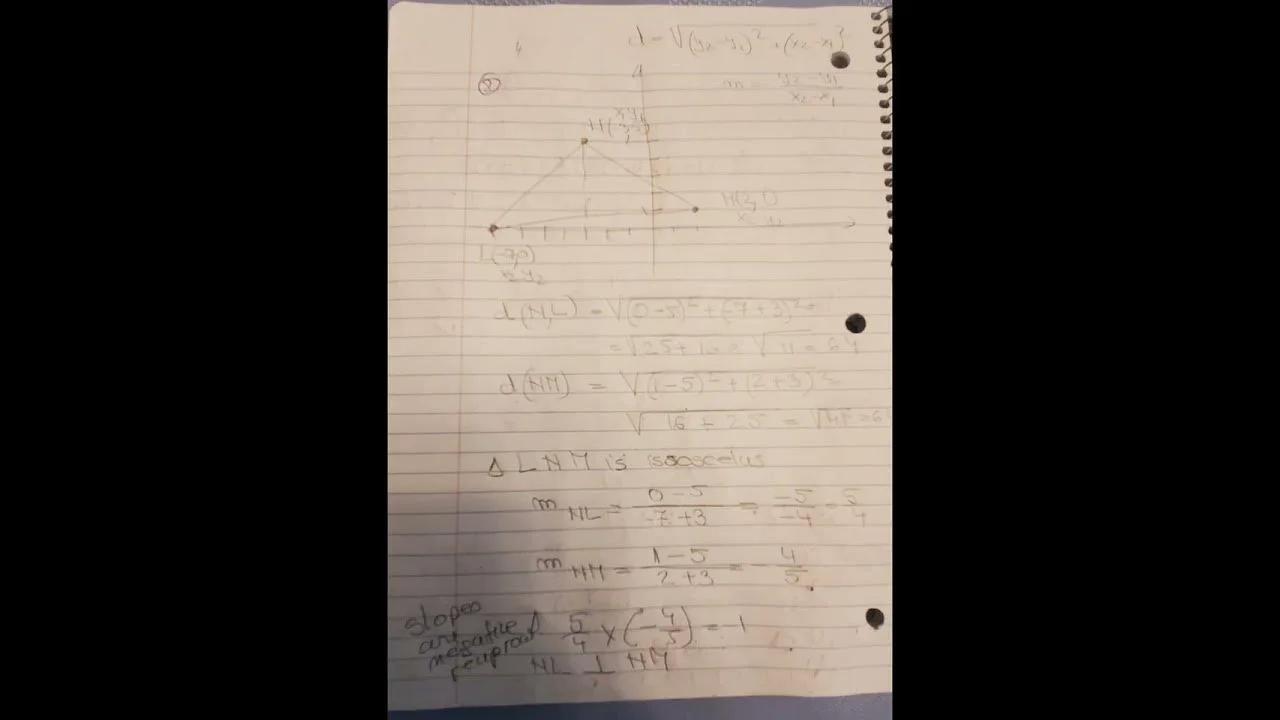 d = √(y₂-y₁)² + (x₂-x₁)²
m = y₂-y₁ / x₂-x₁
x₁ y₁
N(-3,5)
M(2,1)
x₂ y₂
L(-7,0)
x₂ y₂
d(N,L) = √(0-5)² + (-7+3)²
= √25+16 = √41 = 6.4
d(NM) = √(1-5)² + (2+3)²
√16 + 25 = √41 = 6.4
Δ LNM is isoscelus
m NL = 0-5 / -7+3 = -5 / -4 = 5 / 4
m NM = 1-5 / 2+3 = - 4 / 5
slopes
are
negative
5/4 × (-4/5) = -1
NL ⊥ NM